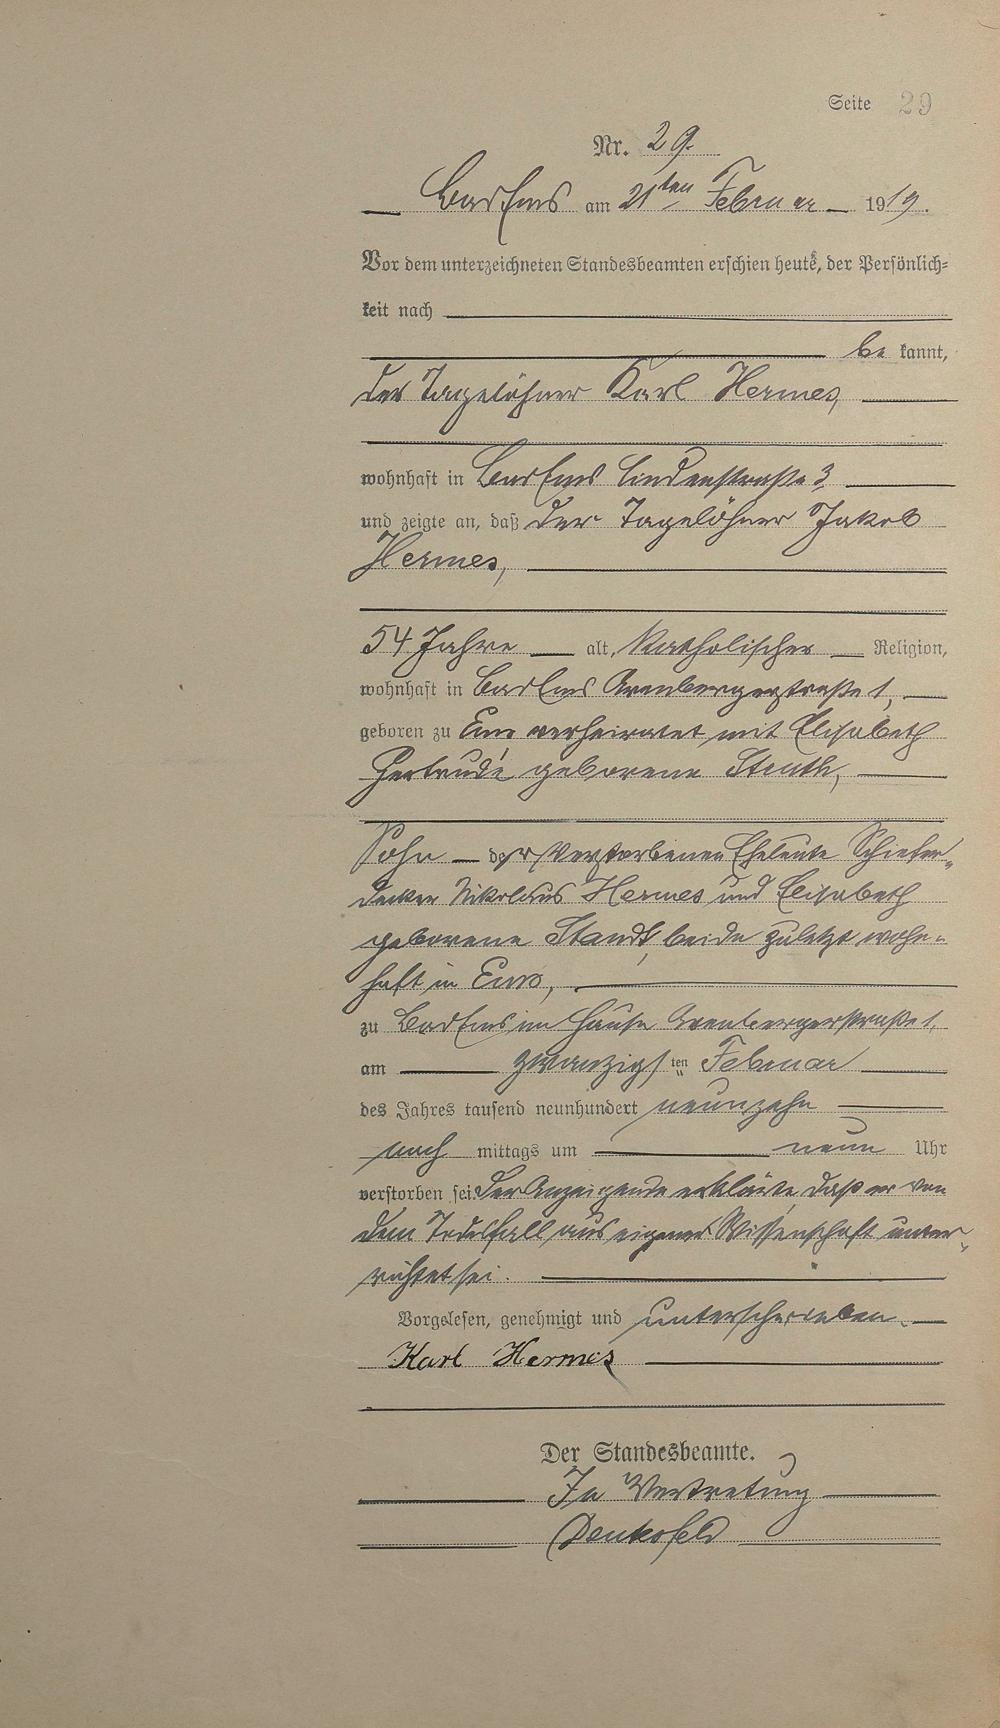 Seite 29
Nr. 29.
Bad Ems am 21ten Februar 1919.
Vor dem unterzeichneten Standesbeamten erschien heute, der Persönlich-
keit nach
be kannt,
der Tagelöhner Karl Hermes,
wohnhaft in Bad Ems Lindenstraße 3
und zeigte an, daß der Tagelöhner Jakob
Hermes,
54 Jahre alt, katholischer Religion,
wohnhaft in Bad Ems Arenbergerstraße 1,
geboren zu verheiratet mit Elisabeth
Gertrude geborene
Sohn der verstorbenen Eheleute Schiefer-
decker Nikolaus Hermes und Elisabeth
geborene Standt, beide zuletzt wohn-
haft in
zu Bad Ems im Hause Arenbergerstraße 1,
am zwanzigsten Februar
des Jahres tausend neunhundert neunzehn
nach mittags um neun Uhr
verstorben sei. Der Anzeigende erklärte daß er von
dem Todesfall aus eigener Wissenschaft unter-
richtet sei.
Vorgelesen, genehmigt und unterschrieben.
Karl Hermes
Der Standesbeamte.
In Vertretung